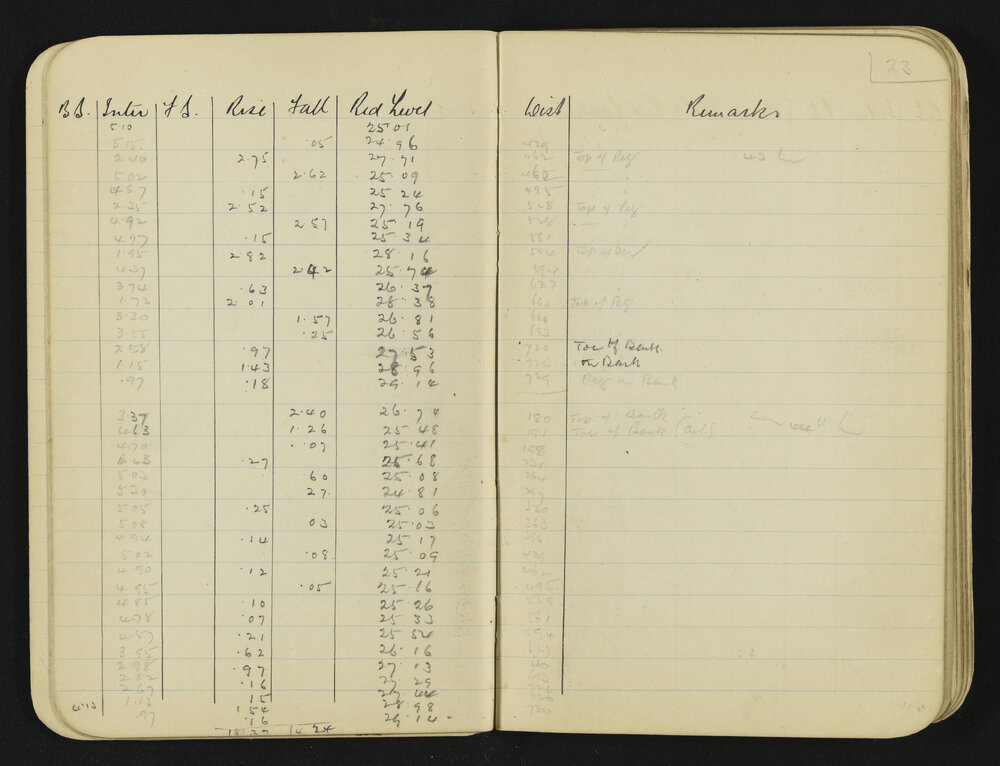 23
B S. Inter F S. Rise Fall Red Level Dist Remarks
5.10 25 01
5.15 .05 24.96 429
2.40 2.75 27.71 462 Top of Peg
5.02 2.62 25.09 462
4.87 .15 25.24 495
2.35 2.52 27.76 528 Top of Peg
4.92 2.57 25 19 528
4.77 .15 25.34 561
1.95 2.82 28.16 594 Top of Peg
4.37 2.42 25.74 594
3.74 .63 26.37 627
1.73 2.01 28.38 660 Top of Peg
3.30 1.57 26.81 660
3.55 .25 26.56 693
2.58 .97 27.53 720 Toe of Bank.
1.15 1.43 28.96 726 on Bank
.97 .18 29.14 729 Peg on Bank
3.37 2.40 26.74 180
4.63 1.26 25.48 Toe of Bank
4.70 .07 25.41 198
4.43 .27 25.68 231
5.03 .60 25.08 264
5.30 27 24.81 297
5.05 .25 25.06 330
5.08 03 25.03 363
4.94 .14 25.17 396
5.02 .08 25.09 429
4.90 .12 25.21 462
4.95 .05 25.16 495
4.85 .10 25.26 528
4.78 .07 25 33 561
4.57 .21 25 54 594
3.95 .62 26.16 627
2.98 .97 27.13 660
2.82 .16 27.29 693
2.67 15 27.44 726
4.13 1.13 1.54 28.98 726
.97 .16 29.14 730
18.27 14 24